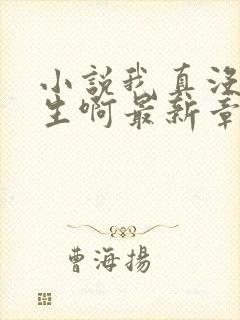 小說我真沒
生啊最新章
曹海揚